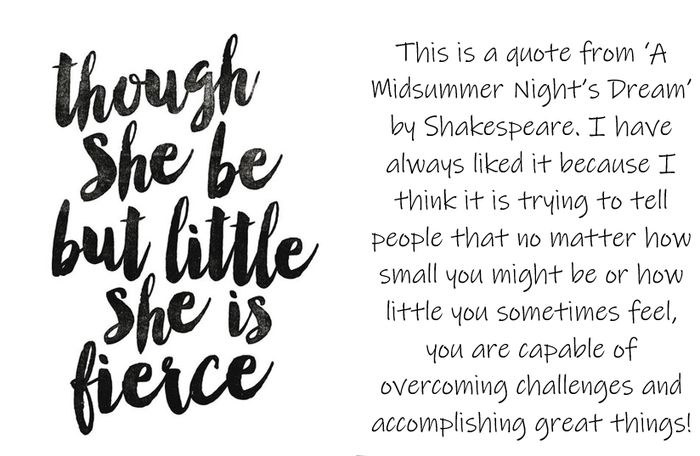 though
She be
but little
she is
fierce
This is a quote from ‘A
Midsummer Night’s Dream’
by Shakespeare. I have
always liked it because I
think it is trying to tell
people that no matter how
small you might be or how
little you sometimes feel,
you are capable of
overcoming challenges and
accomplishing great things!